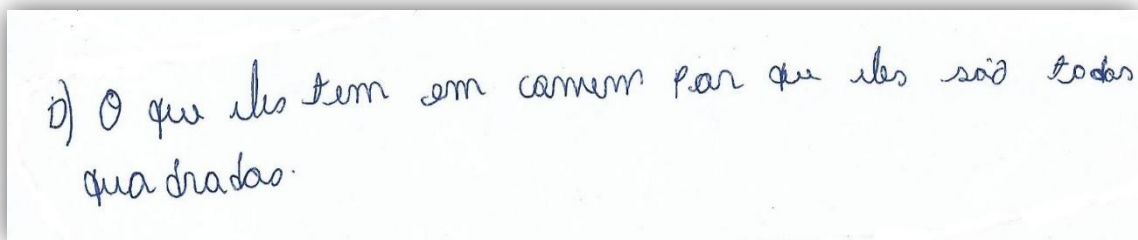 D) O que eles tem em comum por que eles são todos
quadrados.